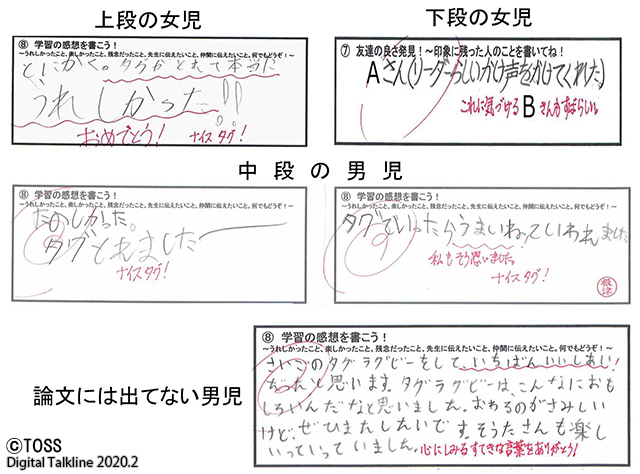 上段の女児
⑧ 学習の感想を書こう！
～うれしかったこと、楽しかったこと、残念だったこと、先生に伝えたいこと、仲間に伝えたいこと、何でもどうぞ！～
とにかく。タグがとれて本当に
うれしかった!!
おめでとう！ ナイスタグ！
下段の女児
⑦ 友達の良さ発見！～印象に残った人のことを書いてね！
Aさん(リーダーらしいかけ声をかけてくれた)
これに気づけるBさんもすばらしい。
中段の男児
⑧ 学習の感想を書こう！
～うれしかったこと、楽しかったこと、残念だったこと、先生に伝えたいこと、仲間に伝えたいこと、何でもどうぞ！～
たのしかった。
タグとれました
ナイスタグ！
⑧ 学習の感想を書こう！
～うれしかったこと、楽しかったこと、残念だったこと、先生に伝えたいこと、仲間に伝えたいこと、何でもどうぞ！～
タグでいったらうまいねっていわれました
私もそう思いました。
ナイスタグ！
根津
論文には出てない男児
⑧ 学習の感想を書こう！
～うれしかったこと、楽しかったこと、残念だったこと、先生に伝えたいこと、仲間に伝えたいこと、何でもどうぞ！～
さいごのタグラグビーをして、いちばんいいしあい!
だったと思います。タグラグビーは、こんなにおも
しろいんだなと思いました。おわるのがさみしい
けど、ぜひまたしたいです。そうたさんも楽し
いっていっていました。心にしみるすてきな言葉をありがとう！
©TOSS
Digital Talkline 2020.2